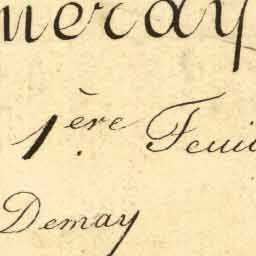 neray
1ère Feui
Demay